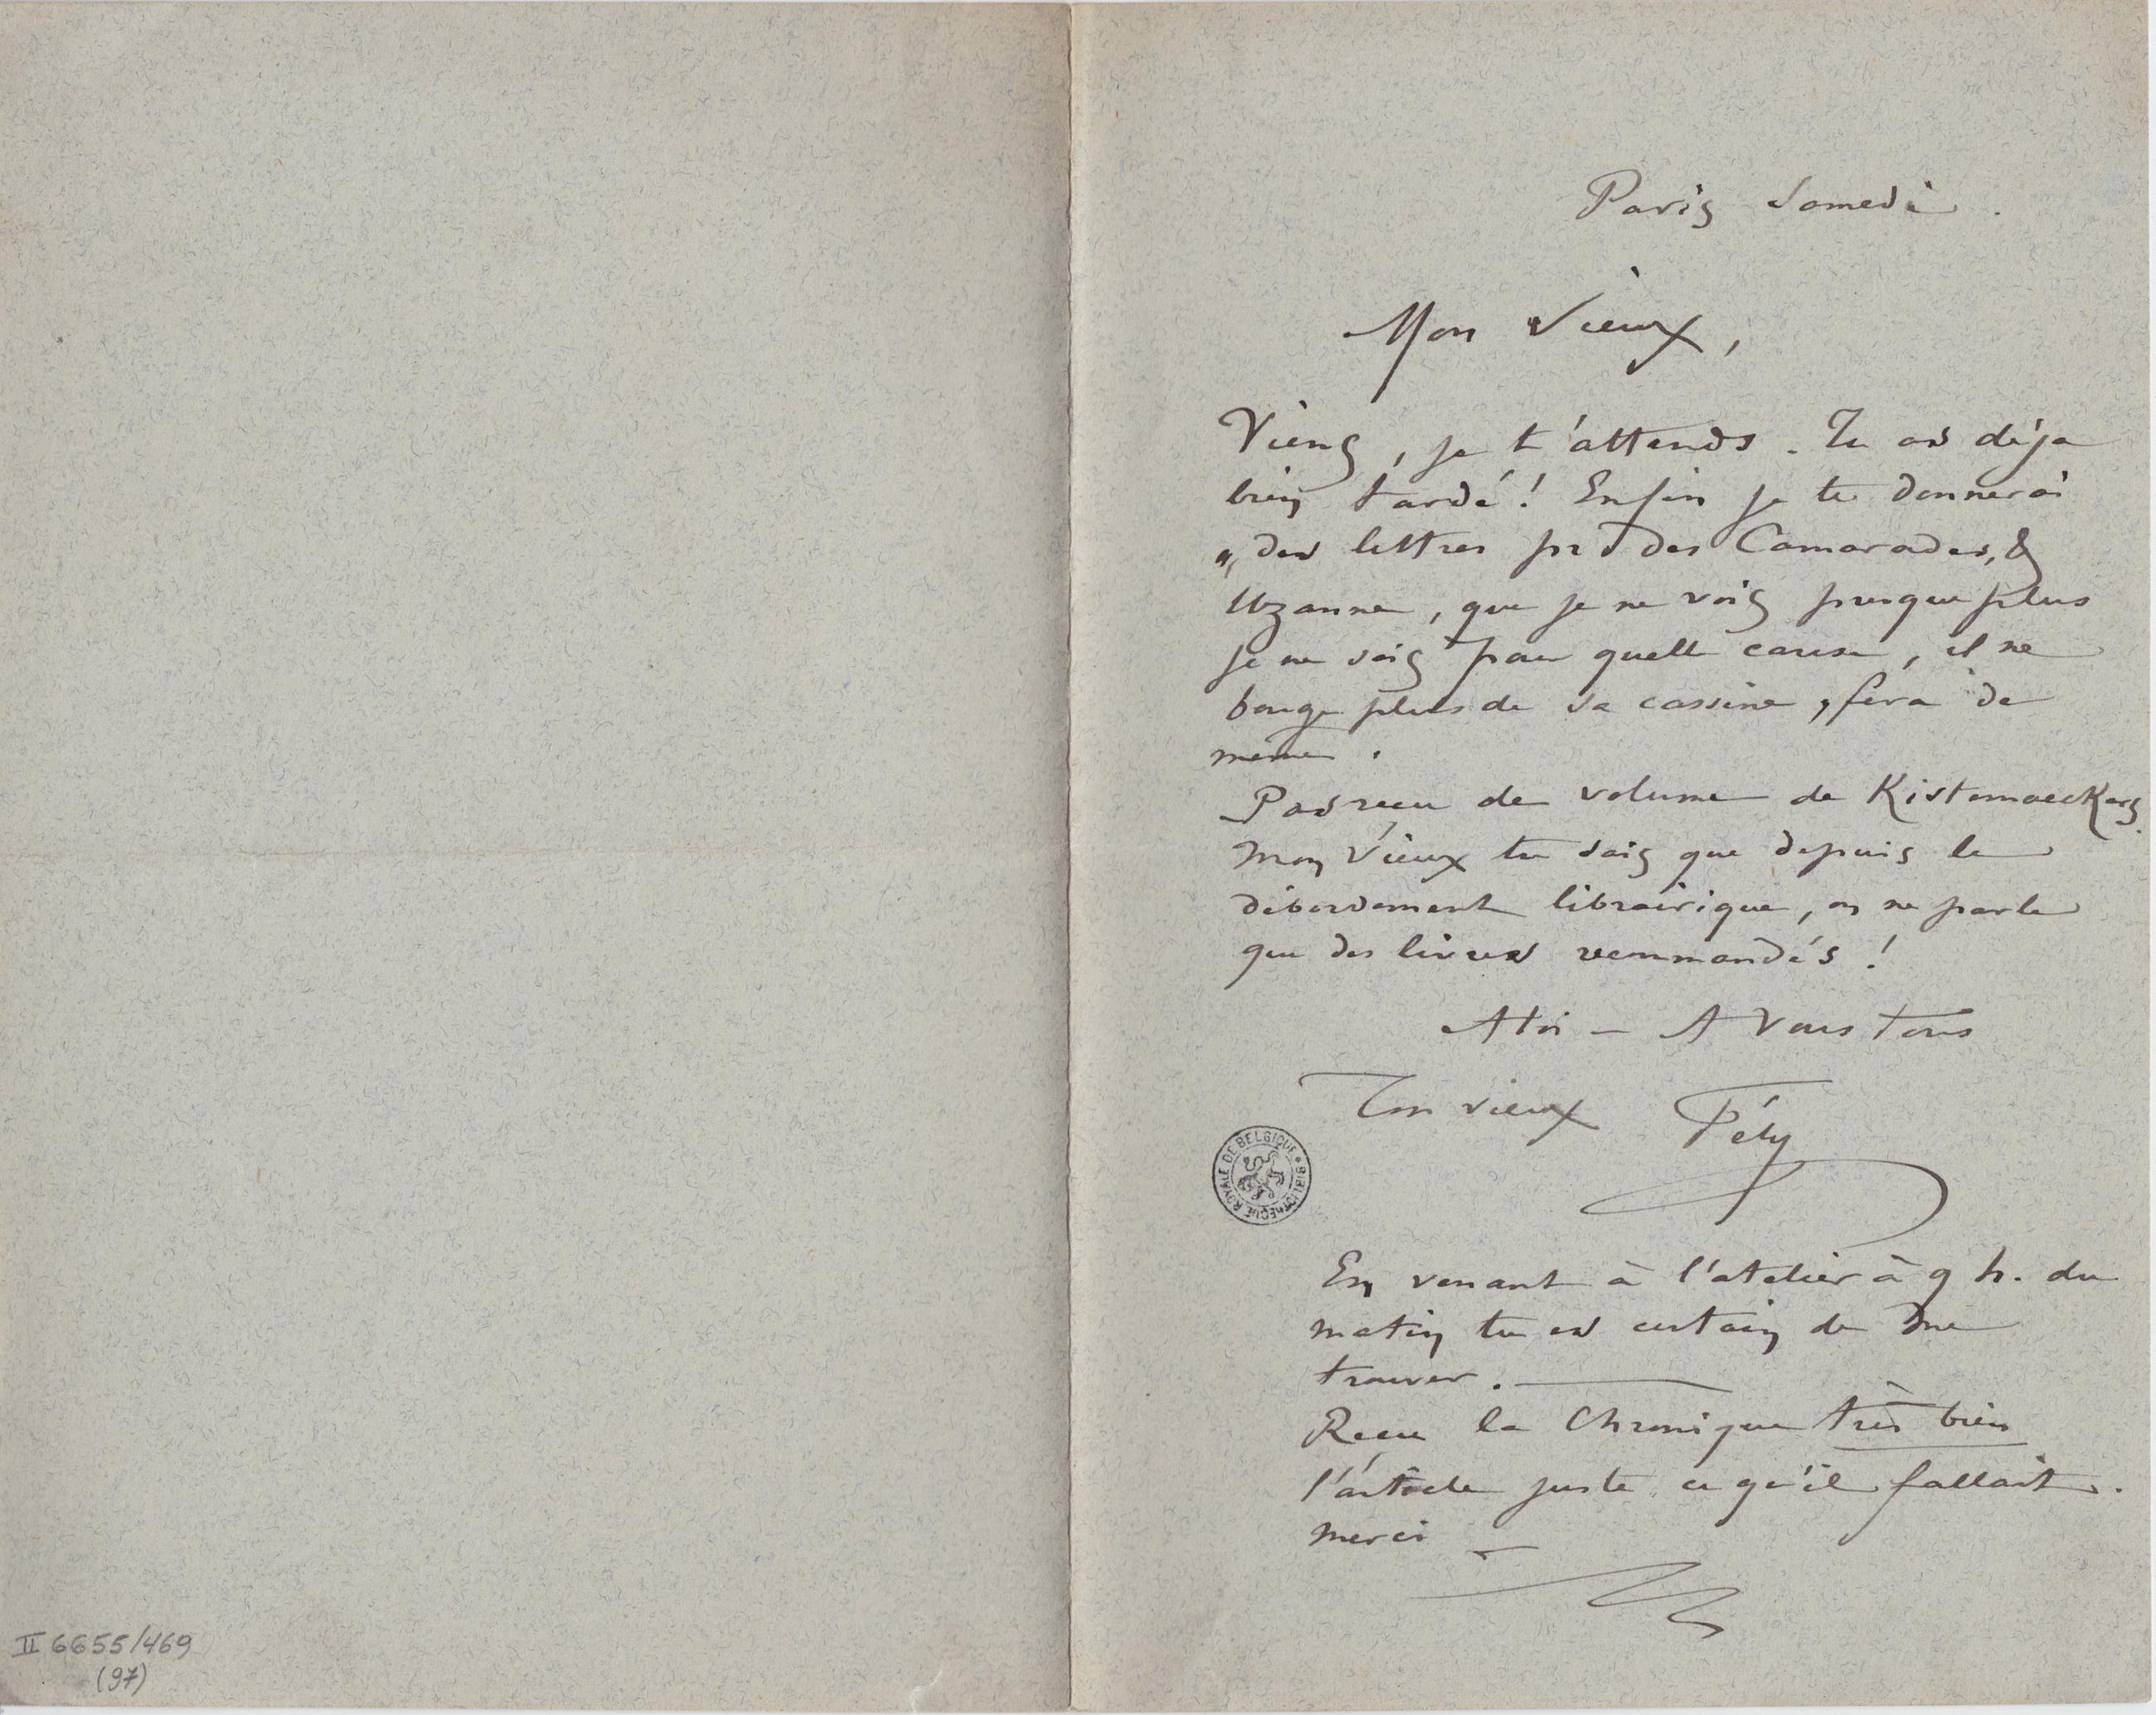 Paris Samedi.
Mon Vieux,
Viens, je t'attends. Tu as déja
bien tardé ! Enfin je te donnerai
des lettres pr des Camarades, &
Uzanne, que je ne vois presque plus
je ne sais pour quelle cause, il ne
bouge plus de sa cassine, fera de
même.
Pas reçu de volume de Kistemaeckers.
Mon Vieux tu sais que depuis le
débordement librairique, on ne parle
que des livres recommandés !
A toi – A Vous tous
Ton vieux Fély
BIBLIOTHÈQUE ROYALE DE BELGIQUE
En venant à l'atelier à 9 h. du
matin tu es certain de me
trouver.
Reçu la Chronique très bien
l'article juste ce qu'il fallait.
merci
II 6655/469
(97)